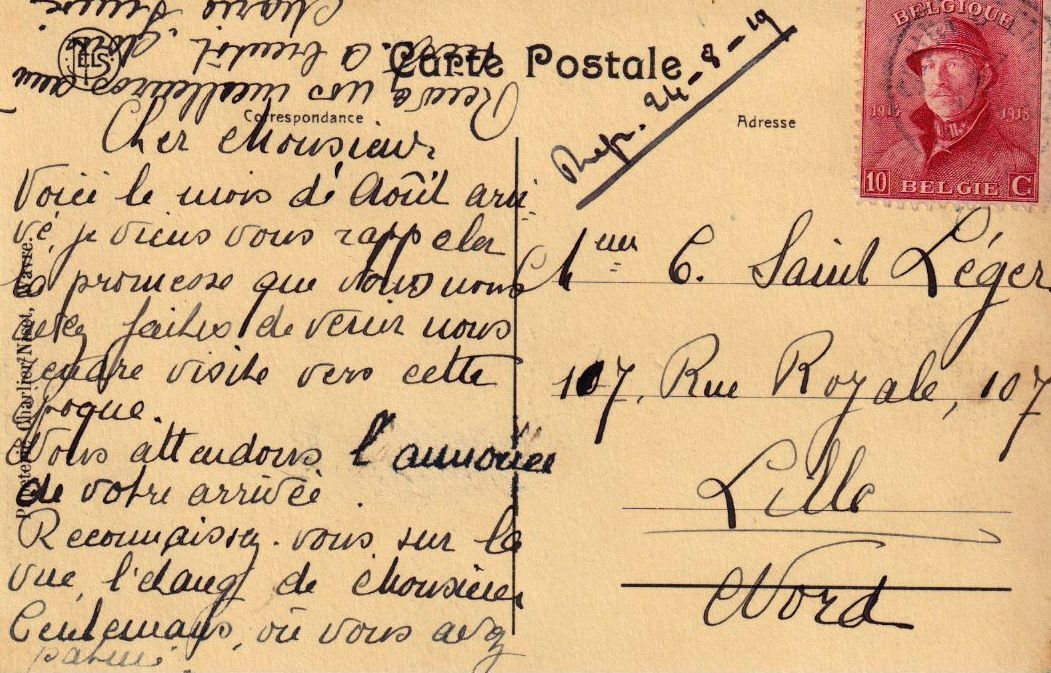 Carte Postale
Correspondance
Adresse
BELGIQUE
1914 1918
10 BELGIE C
NELS
Phototypie Charlier-Niset, Wavre.
Repr. 24-8-19
Cher Monsieur,
Voici le mois d'Août arri
vé, je viens vous rappeler
la promesse que vous nous
avez faites de venir nous
rendre visite vers cette
époque.
Nous attendons l'annonce
de votre arrivée.
Reconnaissez-vous sur la
vue, l'étang de Monsieur
où vous avez
Recevez nos meilleures
A bientôt
C. Saint Léger
107, Rue Royale, 107
Lille
Nord